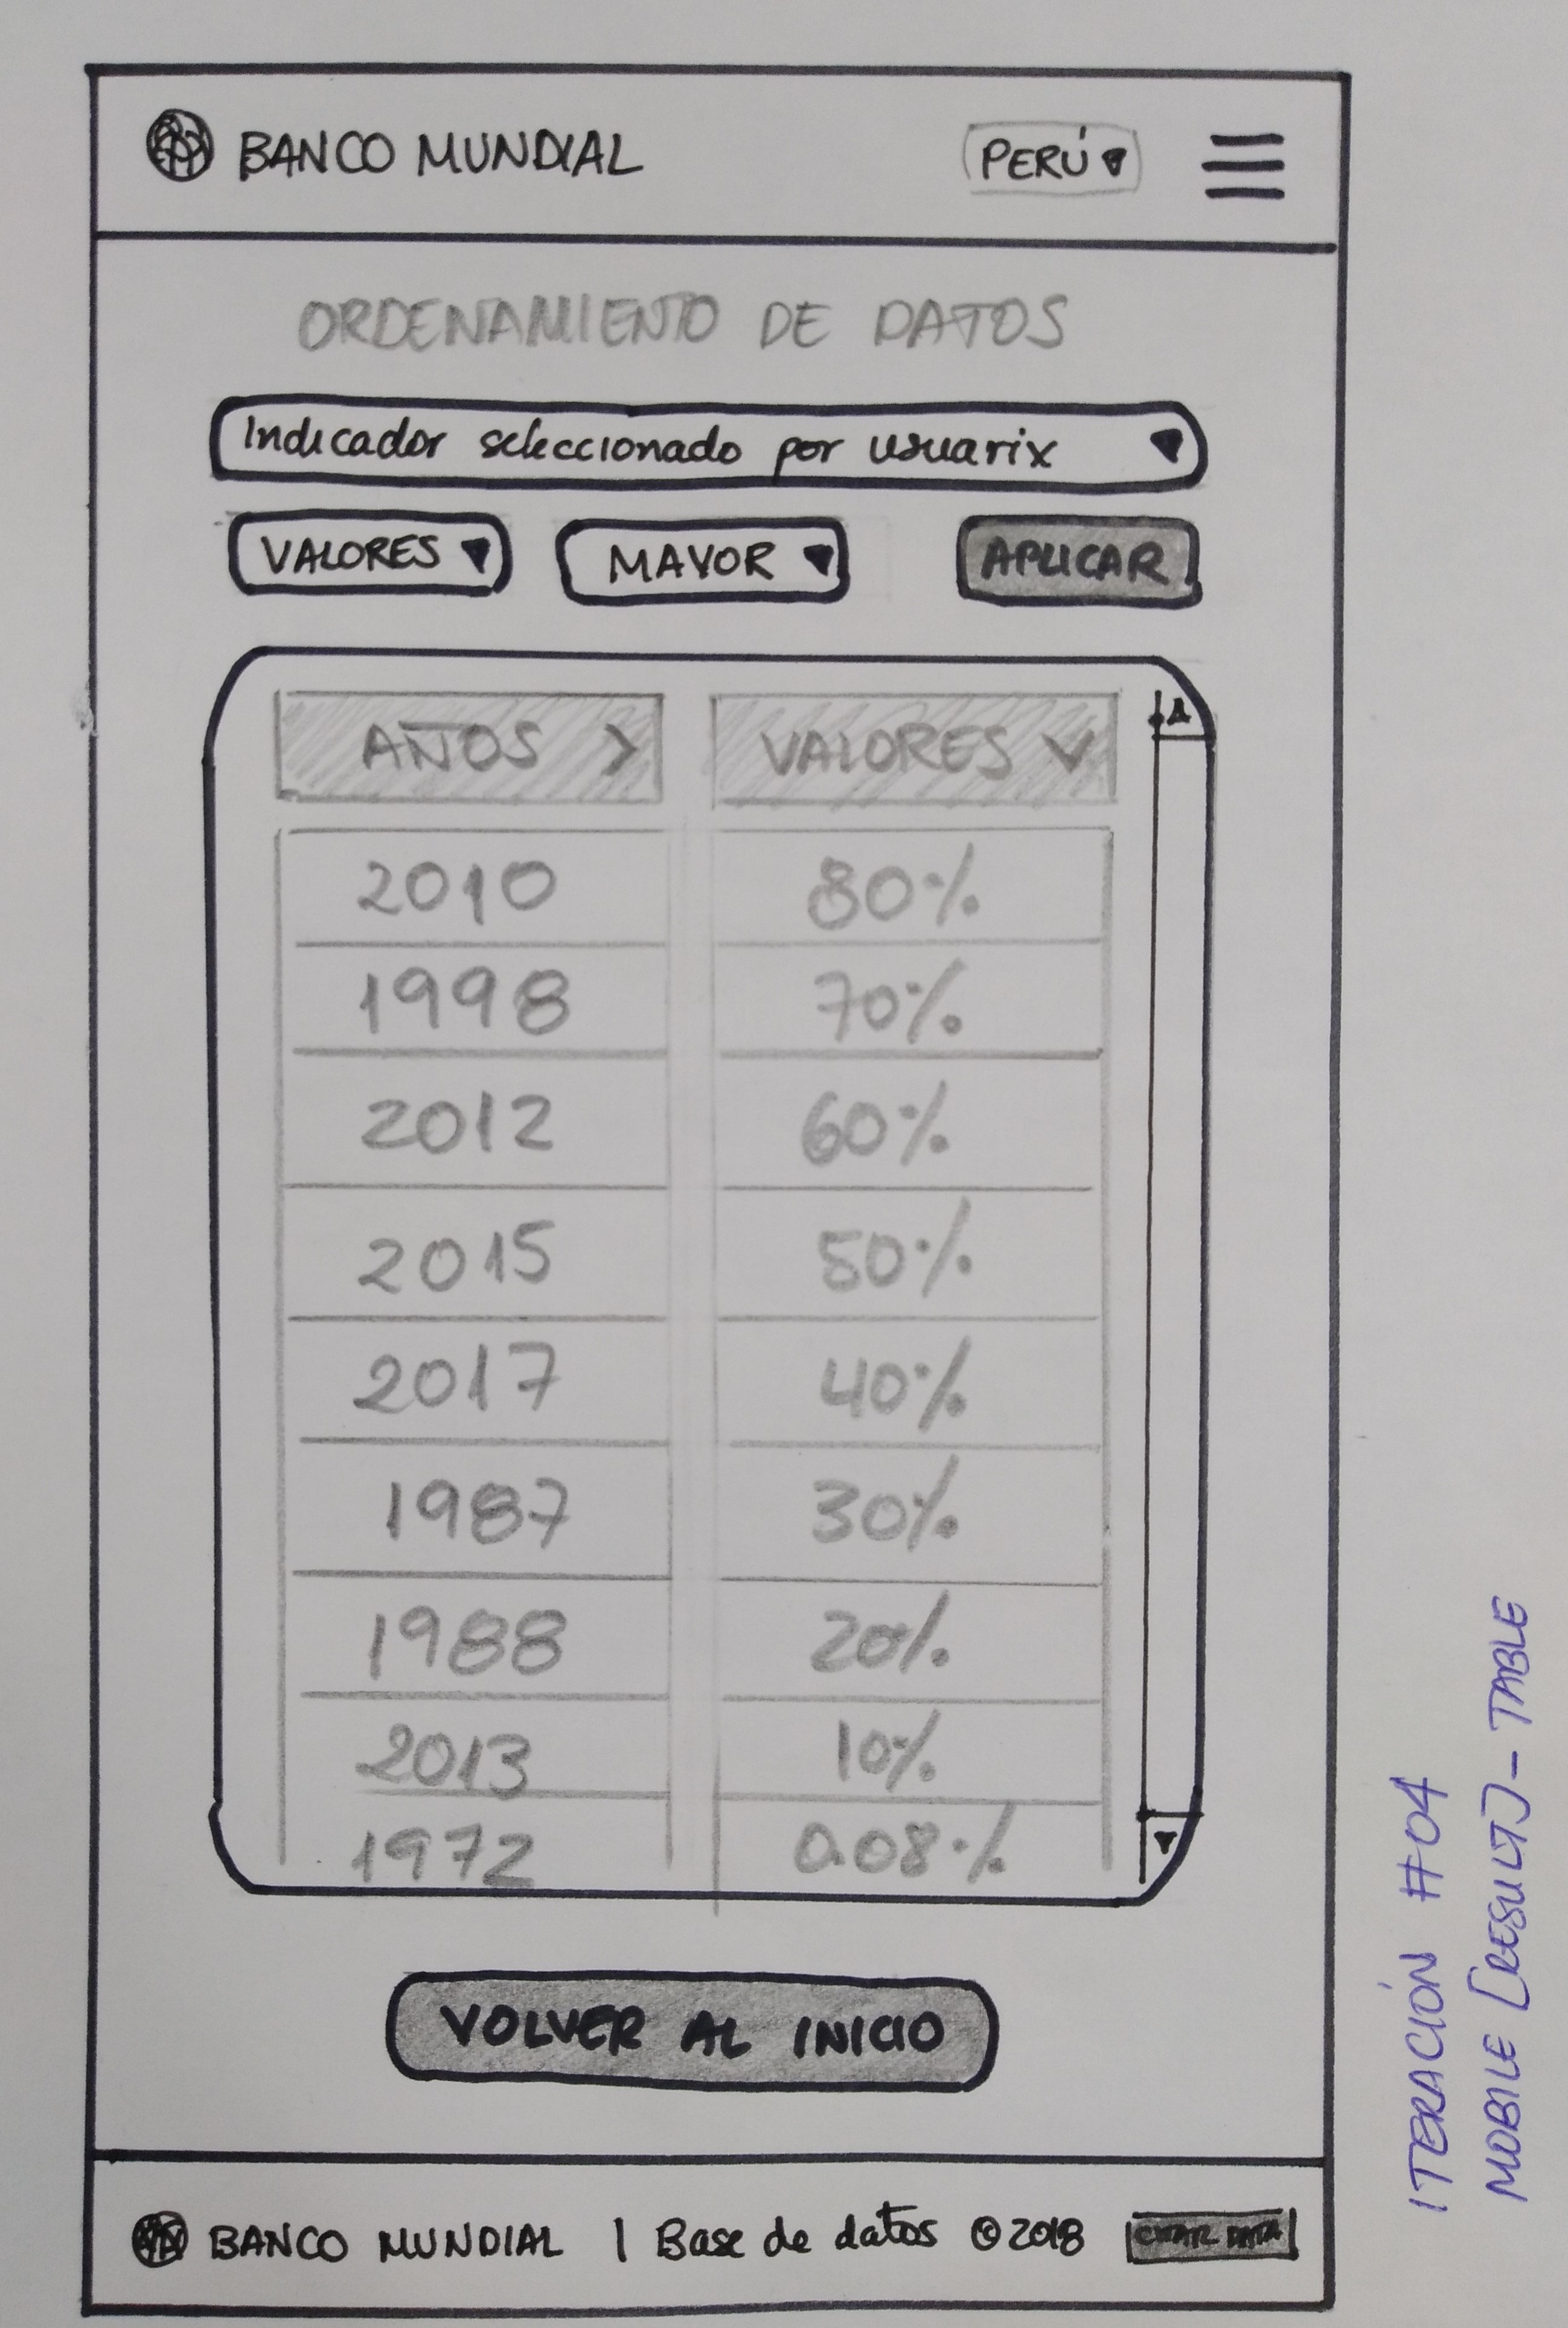 BANCO MUNDIAL PERÚ
ORDENAMIENTO DE DATOS
Indicador seleccionado por usuarix
VALORES MAYOR APLICAR
AÑOS > VALORES
2010 80%
1998 70%
2012 60%
2015 50%
2017 40%
1987 30%
1988 20%
2013 10%
1972 0.08%
VOLVER AL INICIO
BANCO MUNDIAL | Base de datos ©2018 CITAR DATA
ITERACIÓN #04
MOBILE [RESULT] - TABLE